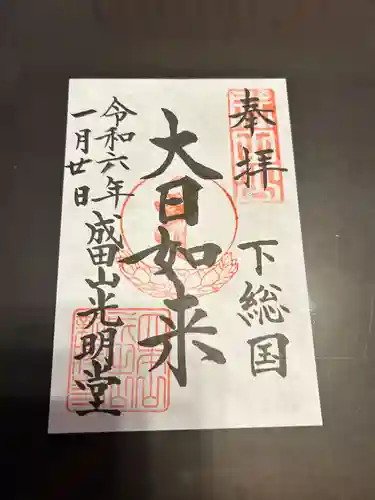 奉拝
下総国
大日如来
令和六年
一月廿日
成田山光明堂